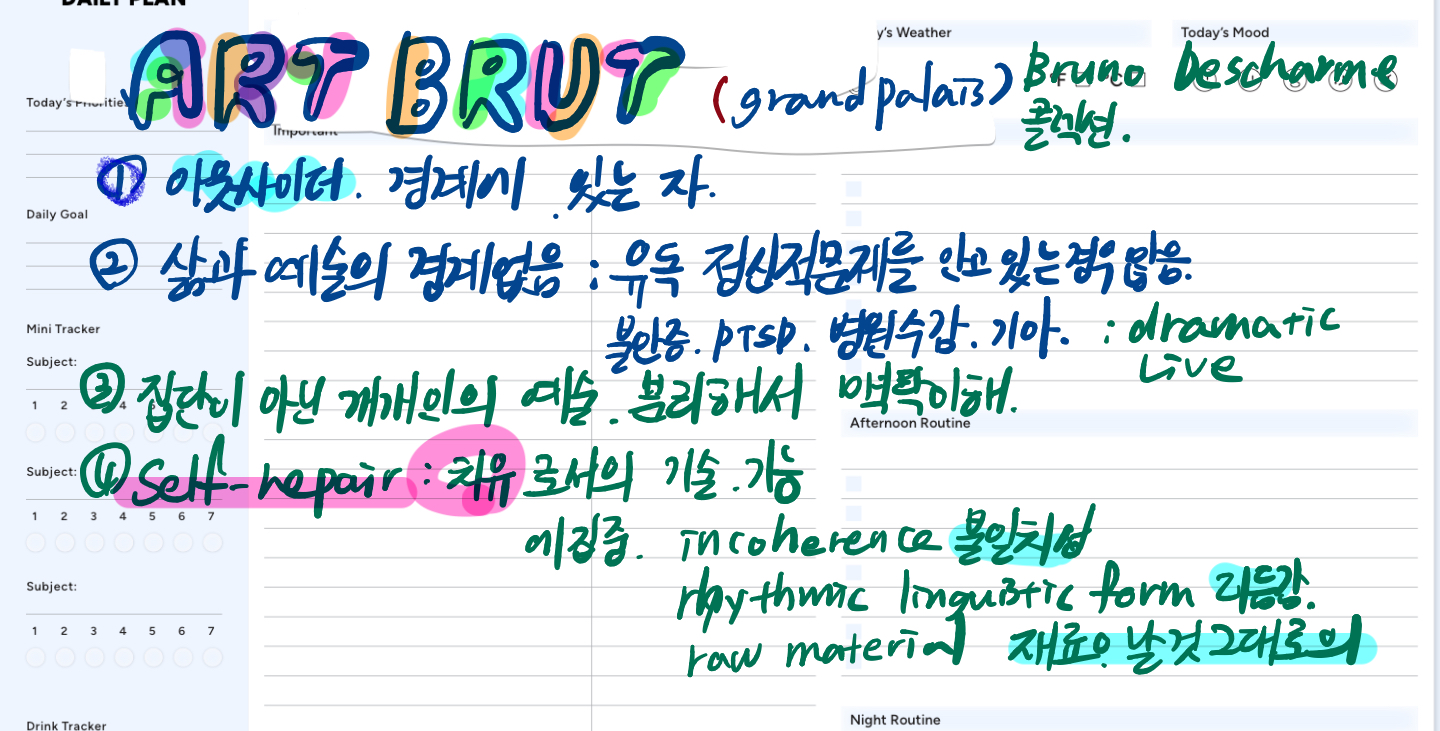 DAILY PLAN
ART BRUT (grand palais) Bruno Descharme
콜렉션.
y's Weather
Today's Mood
Today's Priorities
Important
① 아웃사이더. 경계에 있는 자.
Daily Goal
② 삶과 예술의 경계없음 : 유독 정신적문제를 안고 있는경우 많음.
불안증. PTSD. 병원수감. 기아. : dramatic
Live
Mini Tracker
Subject:
③ 집단이 아닌 개개인의 예술. 분리해서 맥락이해.
1 2 4
Afternoon Routine
Subject:
④ Self-repair : 치유 로서의 기술. 기능
1 2 3 4 5 6 7
에 집중. incoherence 불일치성
rhythmic linguistic form 리듬감.
raw material 재료의 날것 그대로의
Subject:
1 2 3 4 5 6 7
Drink Tracker
Night Routine